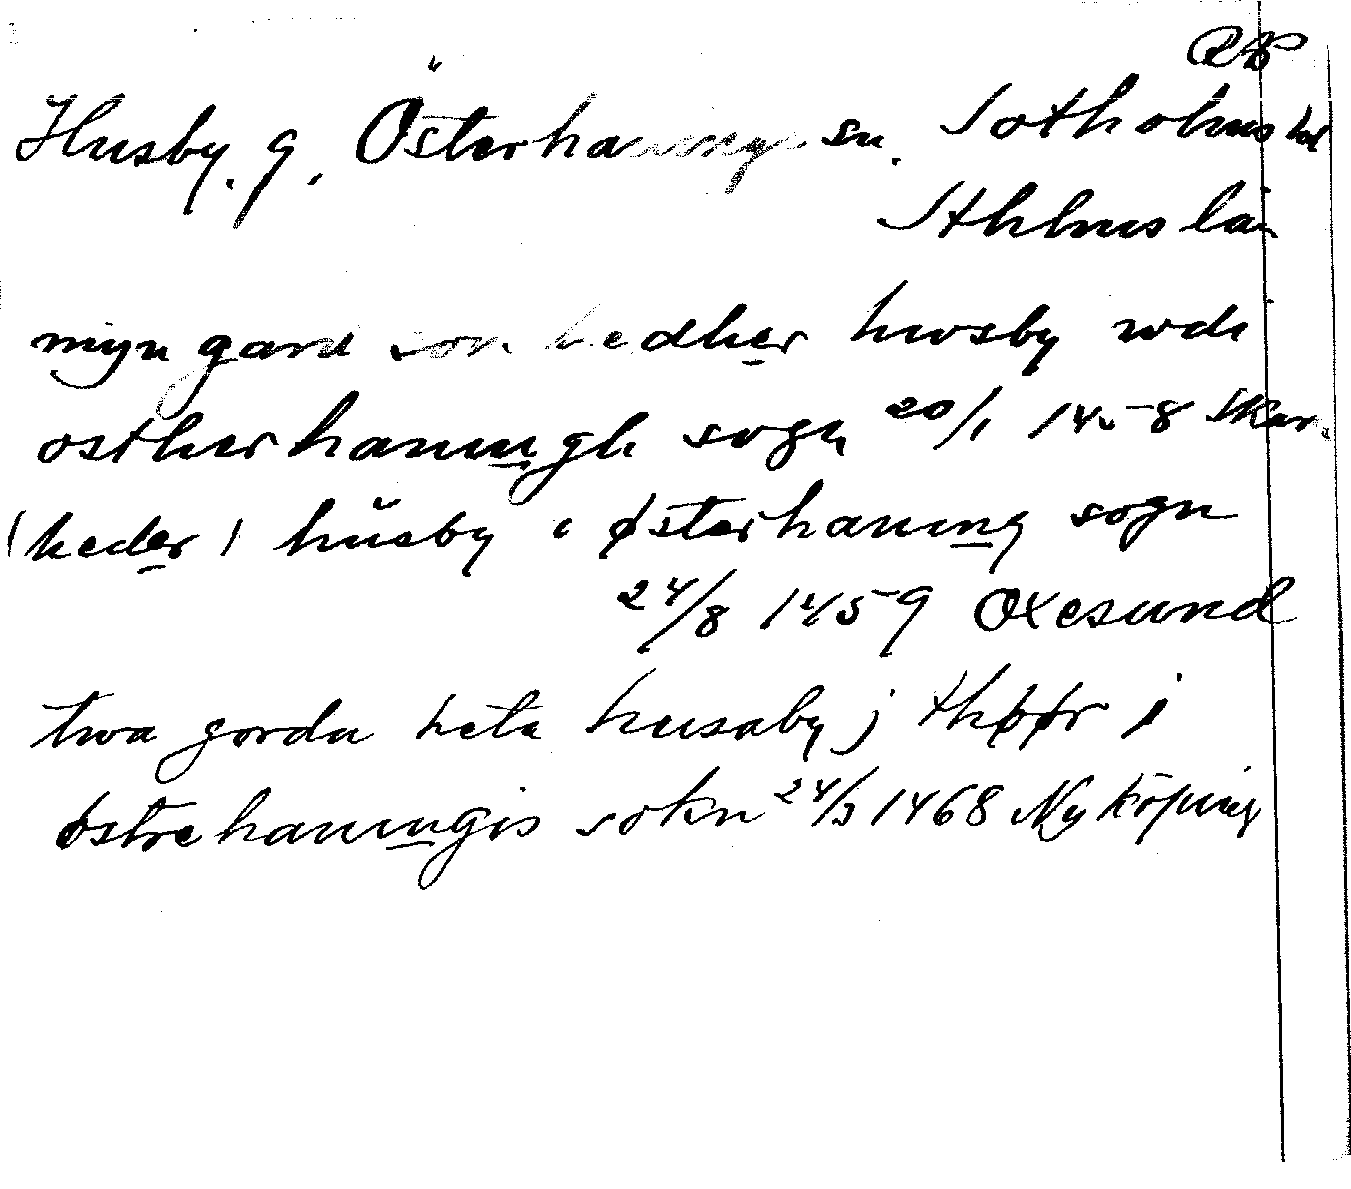 RAP
Husby, g, Österhaninge sn. Sotholms hd
Sthlms län
myn gard som hedher hwsby wdi
osther haningh sogn 20/1 1458 Skar
(heder) hŭsby i østerhaning sogn
24/8 1459 Oxesund
twa gorda heta husaby j thøør i
østrehaningis sokn 24/3 1468 Nyköping